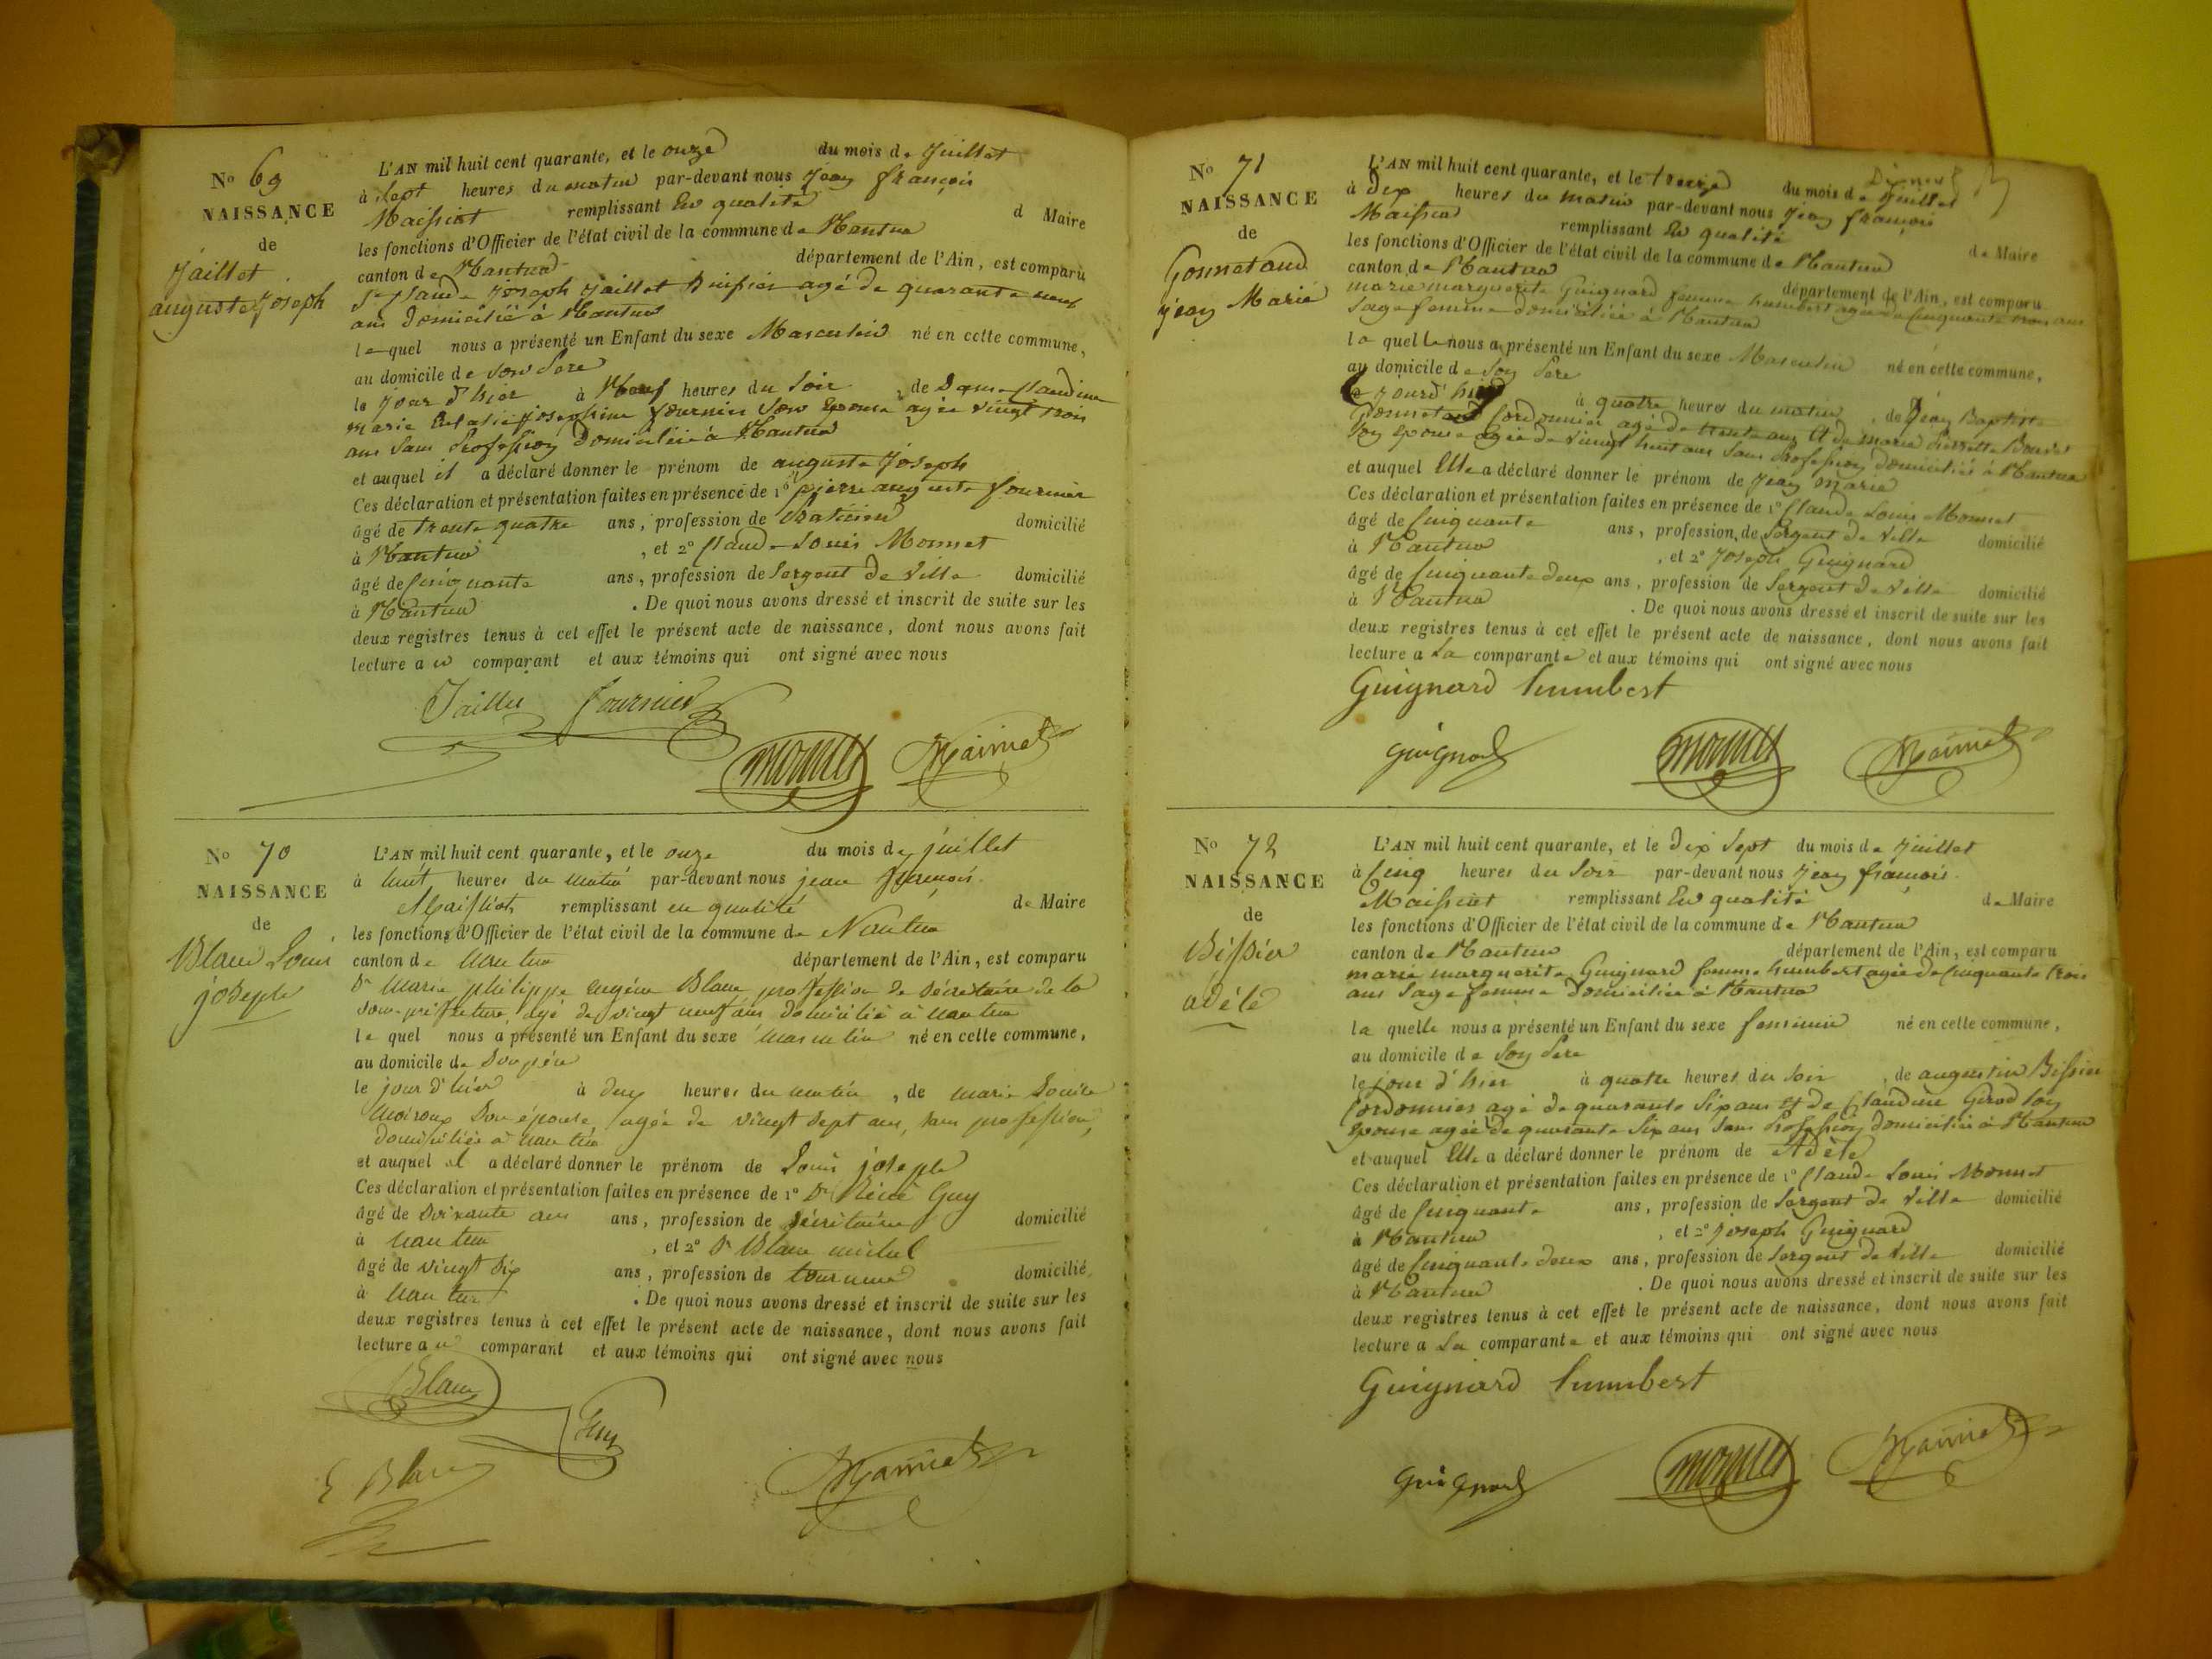 No 69
NAISSANCE
de
Jaillet
auguste Joseph
L'AN mil huit cent quarante, et le onze du mois de Juillet
à sept heures du matin par-devant nous Jean françois
Maissiat remplissant En qualité d Maire
les fonctions d'Officier de l'état civil de la commune de Nantua
canton de Nantua département de l'Ain, est comparu
Sr Claude Joseph Jaillet huissier agé de quarante neuf
ans Domicilié à Nantua
lequel nous a présenté un Enfant du sexe Masculin né en cette commune,
au domicile de son Père
le jour d'hier à Neuf heures du soir, de Dame Claudine
marie Josephine fournier son Epouse agée vingt trois
ans Sans Profession Domiciliée à Nantua
et auquel il a déclaré donner le prénom de auguste Joseph
Ces déclaration et présentation faites en présence de 1º pierre auguste fournier
âgé de trente quatre ans, profession de Praticien domicilié
à Nantua, et 2º Claude Louis Monnet
âgé de Cinquante ans, profession de Sergent de Ville domicilié
à Nantua. De quoi nous avons dressé et inscrit de suite sur les
deux registres tenus à cet effet le présent acte de naissance, dont nous avons fait
lecture au comparant et aux témoins qui ont signé avec nous
Jaillet fournier
monnet Maissiat
No 70
NAISSANCE
de
Blanc Louis
joseph
L'AN mil huit cent quarante, et le onze du mois de juillet
à huit heures du matin par-devant nous jean françois
Maissiat remplissant en qualité de Maire
les fonctions d'Officier de l'état civil de la commune de Nantua
canton de nantua département de l'Ain, est comparu
Sr Marie philippe Eugène Blanc profession de Secrétaire de la
sous-préfecture, agé de vingt neuf ans domicilié à nantua
lequel nous a présenté un Enfant du sexe masculin né en cette commune,
au domicile de Son père
le jour d'hier à deux heures du matin, de marie Louise
moiroux Son épouse, agée de vingt sept ans, sans profession,
domiciliée à nantua
et auquel il a déclaré donner le prénom de Louis joseph
Ces déclaration et présentation faites en présence de 1º Sr Réné Guy
âgé de Soixante ans ans, profession de Sécrétaire domicilié
à nantua, et 2º Sr Blanc michel
âgé de vingt six ans, profession de tourneur domicilié
à nantua. De quoi nous avons dressé et inscrit de suite sur les
deux registres tenus à cet effet le présent acte de naissance, dont nous avons fait
lecture au comparant et aux témoins qui ont signé avec nous
Blanc
Guy
E Blanc Maissiat
No 71
NAISSANCE
de
Gonnetand
jean Marie
L'AN mil huit cent quarante, et le treize du mois de Juillet
à dix heures du matin par-devant nous Jean françois
Maissiat remplissant En qualité de Maire
les fonctions d'Officier de l'état civil de la commune de Nantua
canton de Nantua département de l'Ain, est comparu
marie marguerite Guignard femme humbert agée de Cinquante trois ans
Sage femme domiciliée à Nantua
laquelle nous a présenté un Enfant du sexe Masculin né en cette commune,
au domicile de Son Père
le jourd'hier à quatre heures du matin, de Jean Baptiste
Gonnetand Cordonnier agé de trente ans et de marie Pierrette
Son Epouse agée de vingt huit ans Sans Profession domiciliée à Nantua
et auquel Elle a déclaré donner le prénom de Jean marie
Ces déclaration et présentation faites en présence de 1º Claude Louis Monnet
âgé de Cinquante ans, profession de Sergent de Ville domicilié
à Nantua, et 2º Joseph Guignard
âgé de Cinquante deux ans, profession de Sergent de Ville domicilié
à Nantua. De quoi nous avons dressé et inscrit de suite sur les
deux registres tenus à cet effet le présent acte de naissance, dont nous avons fait
lecture a La comparante et aux témoins qui ont signé avec nous
Guignard humbert
Guignard monnet Maissiat
No 72
NAISSANCE
de
Bissier
adèle
L'AN mil huit cent quarante, et le Dix Sept du mois de Juillet
à Cinq heures du Soir par-devant nous Jean françois
Maissiat remplissant En qualité de Maire
les fonctions d'Officier de l'état civil de la commune de Nantua
canton de Nantua département de l'Ain, est comparu
marie marguerite Guignard femme humbert agée de Cinquante trois
ans Sage femme Domiciliée à Nantua
laquelle nous a présenté un Enfant du sexe feminin né en cette commune,
au domicile de Son Père
le jour d'hier à quatre heures du Soir, de augustin Bissier
Cordonnier agé de quarante Six ans et de Claudine Girod Son
Epouse agée de quarante Six ans Sans Profession domiciliée à Nantua
et auquel Elle a déclaré donner le prénom de Adèle
Ces déclaration et présentation faites en présence de 1º Claude Louis Monnet
âgé de Cinquante ans, profession de Sergent de Ville domicilié
à Nantua, et 2º Joseph Guignard
âgé de Cinquante deux ans, profession de Sergent de Ville domicilié
à Nantua. De quoi nous avons dressé et inscrit de suite sur les
deux registres tenus à cet effet le présent acte de naissance, dont nous avons fait
lecture a La comparante et aux témoins qui ont signé avec nous
Guignard humbert
Guignard monnet Maissiat